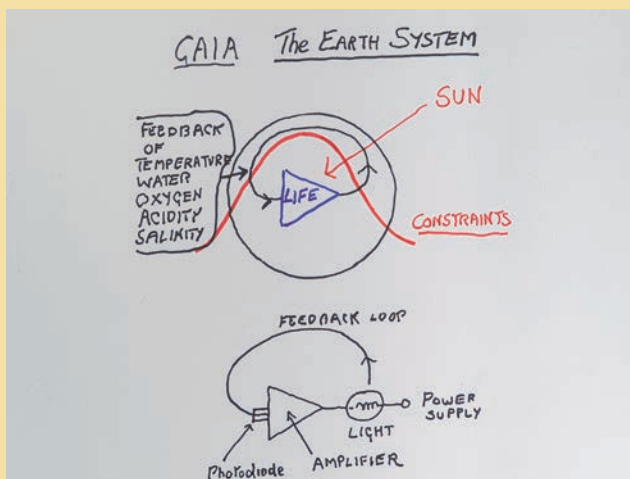 GAIA The EARTH SYSTEM
SUN
FEEDBACK
OF
TEMPERATURE
WATER
OXYGEN
ACIDITY
SALINITY
LIFE
CONSTRAINTS
FEEDBACK LOOP
POWER
SUPPLY
LIGHT
AMPLIFIER
Photodiode